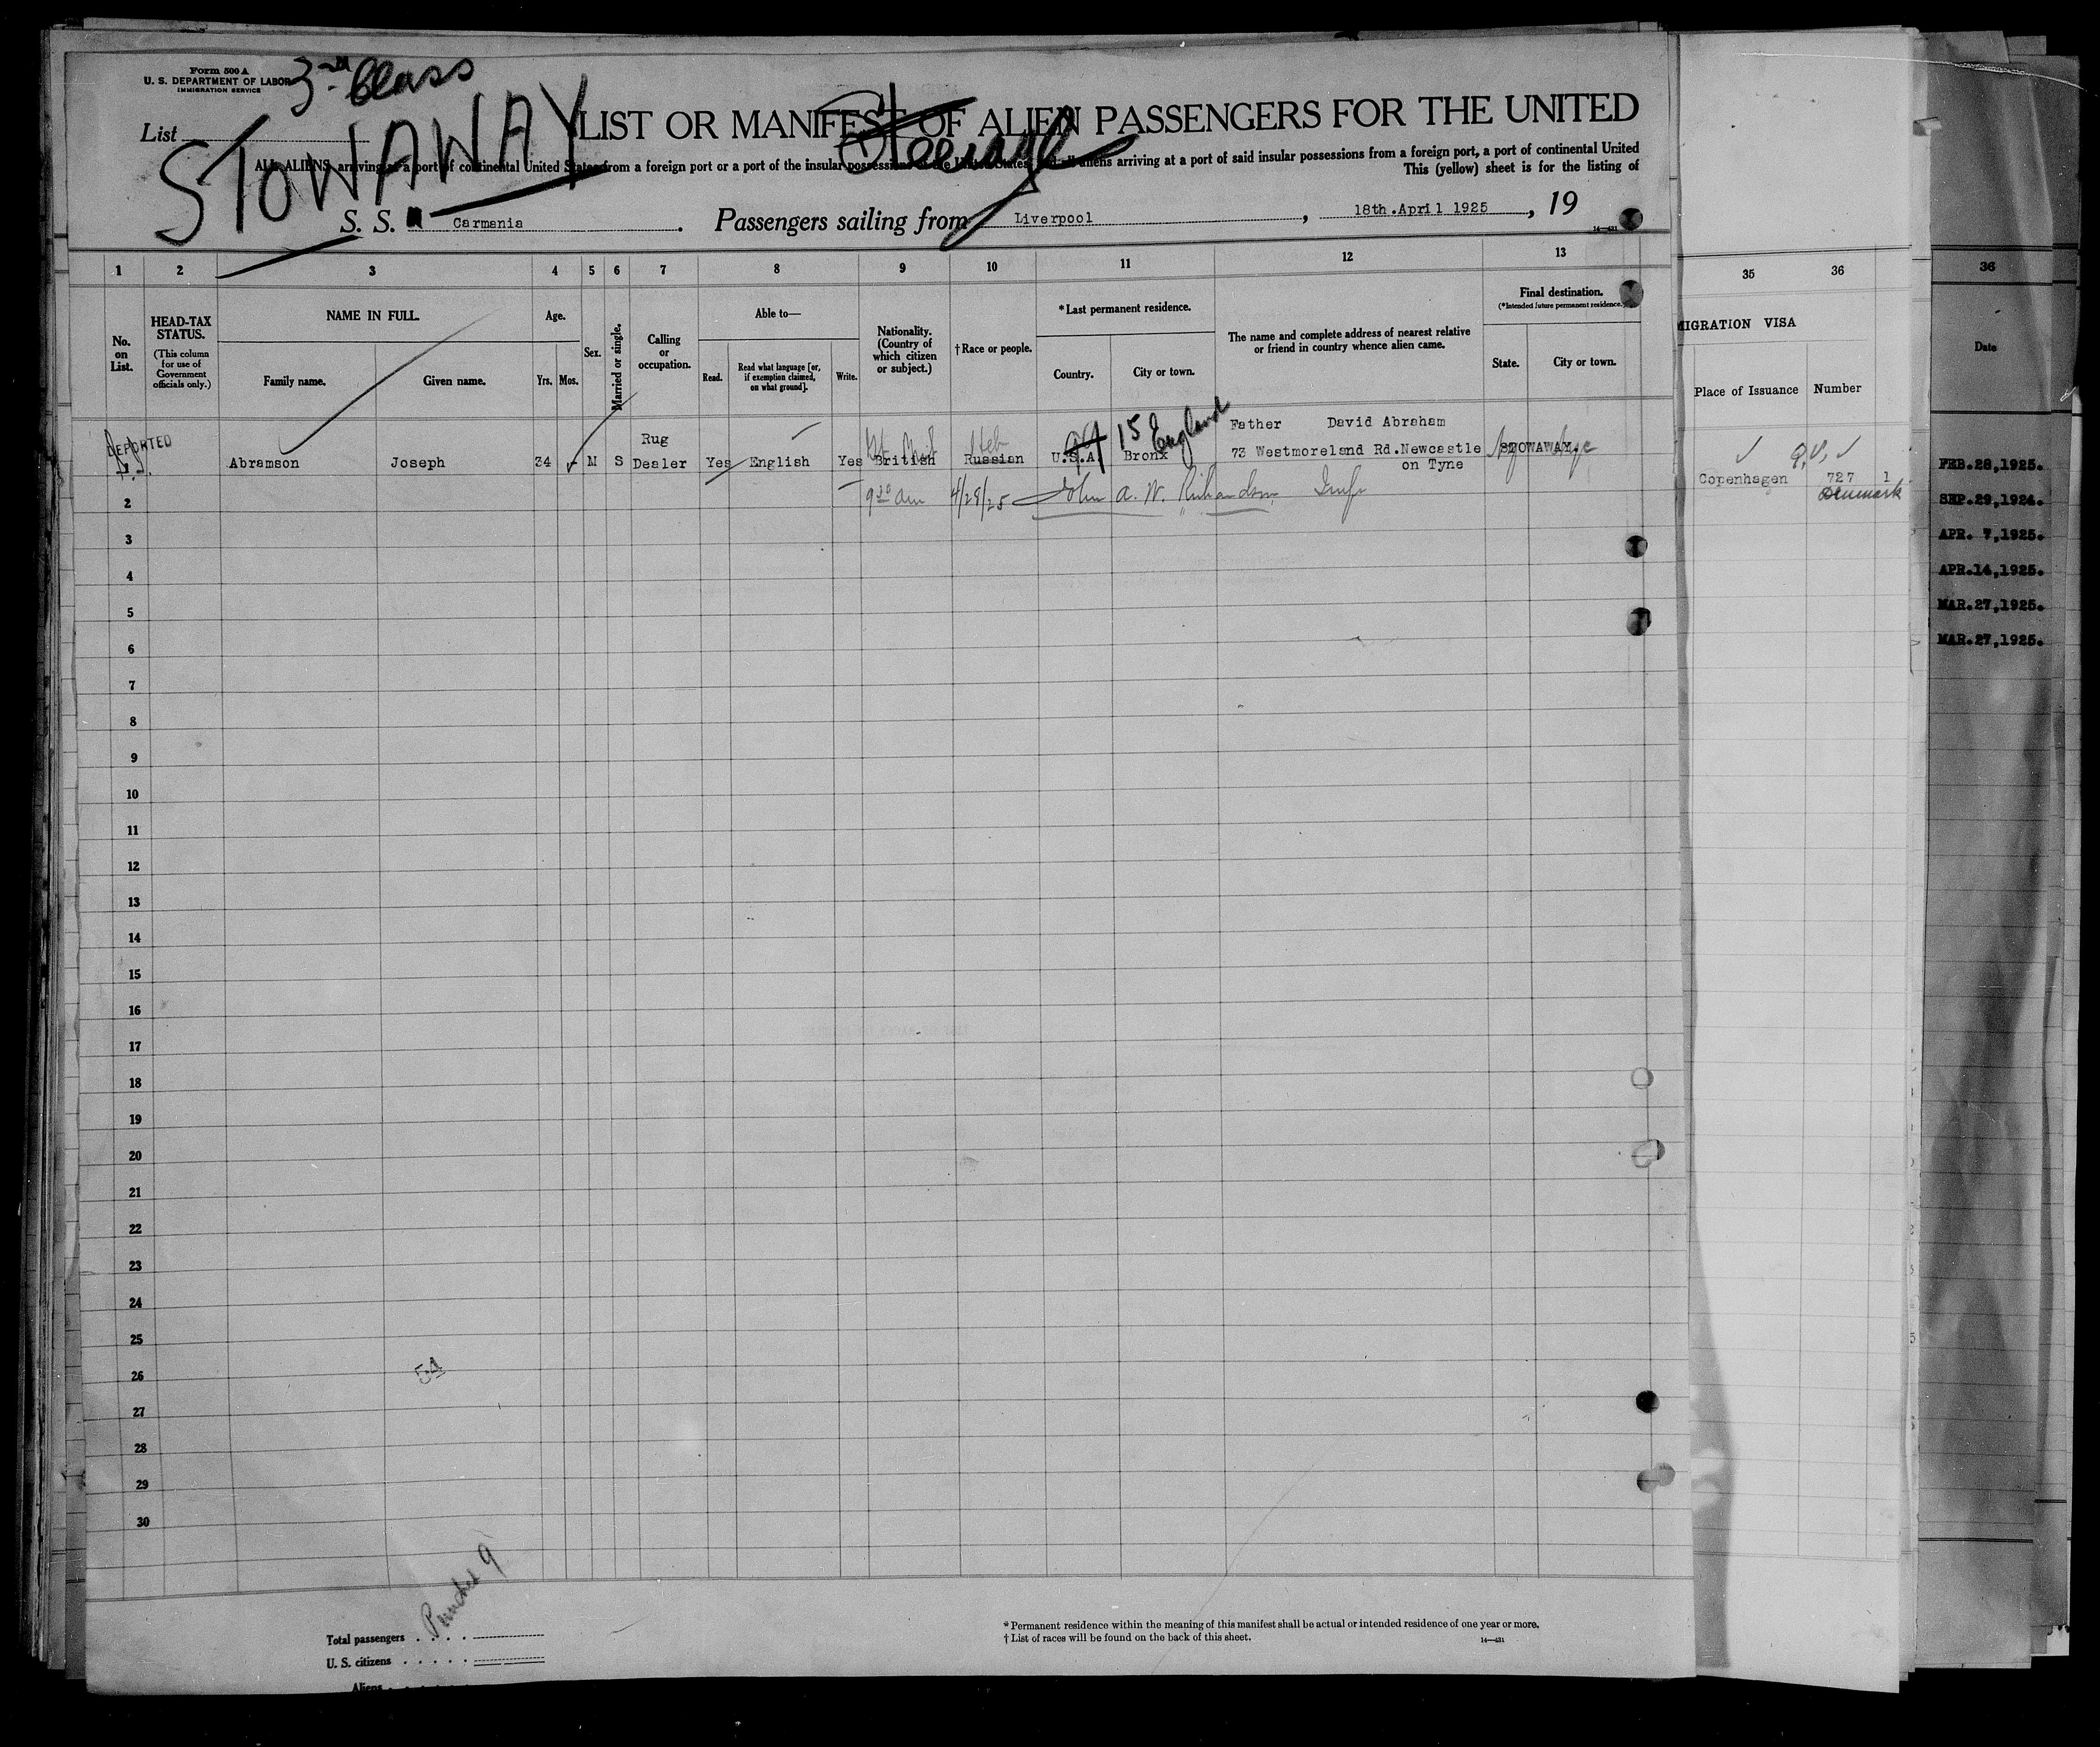 Form 500 A
U. S. DEPARTMENT OF LABOR
IMMIGRATION SERVICE
3rd Class
List
STOWAWAY
LIST OR MANIFEST OF ALIEN PASSENGERS FOR THE UNITED
Steerage
ALL ALIENS arriving at a port of continental United States from a foreign port or a port of the insular possessions of the United States, and all aliens arriving at a port of said insular possessions from a foreign port, a port of continental United
This (yellow) sheet is for the listing of
S. S. Carmania. Passengers sailing from Liverpool, 18th.April 1925, 19
14—431
1 2 3 4 5 6 7 8 9 10 11 12 13
No. on List.
HEAD-TAX STATUS.
(This column for use of Government officials only.)
NAME IN FULL.
Family name.
Given name.
Age.
Yrs. Mos.
Sex.
Married or single.
Calling or occupation.
Able to—
Read.
Read what language [or, if exemption claimed, on what ground].
Write.
Nationality. (Country of which citizen or subject.)
† Race or people.
*Last permanent residence.
Country.
City or town.
The name and complete address of nearest relative or friend in country whence alien came.
Final destination.
(*Intended future permanent residence.)
State.
City or town.
DEPORTED
Abramson Joseph 34 - M S Rug Dealer Yes English Yes British Russian Heb U.S.A. Bronx 15 England
Father David Abraham
73 Westmoreland Rd.Newcastle on Tyne
STOWAWAY
9 30 am 4/28/25 John A. W. Richardson Insp
2
3
4
5
6
7
8
9
10
11
12
13
14
15
16
17
18
19
20
21
22
23
24
25
26
54
27
28
29
30
Punched 9
Total passengers
U. S. citizens
Aliens
* Permanent residence within the meaning of this manifest shall be actual or intended residence of one year or more.
† List of races will be found on the back of this sheet.
14—431
35 36
MIGRATION VISA
Place of Issuance Number
Q.V.
Copenhagen 727 1
Denmark
36
Date
FEB.28,1925.
SEP.29,1924.
APR. 7,1925.
APR.14,1925.
MAR.27,1925.
MAR.27,1925.